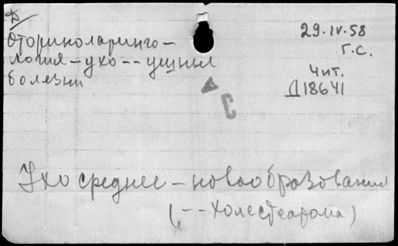 Оториноларинго-
логия - ухо -- ушные
болезни
29.IV.58
Г.С.
Чит.
Д18641
С
Ухо среднее - новообразования
(.-- Холестеатома)